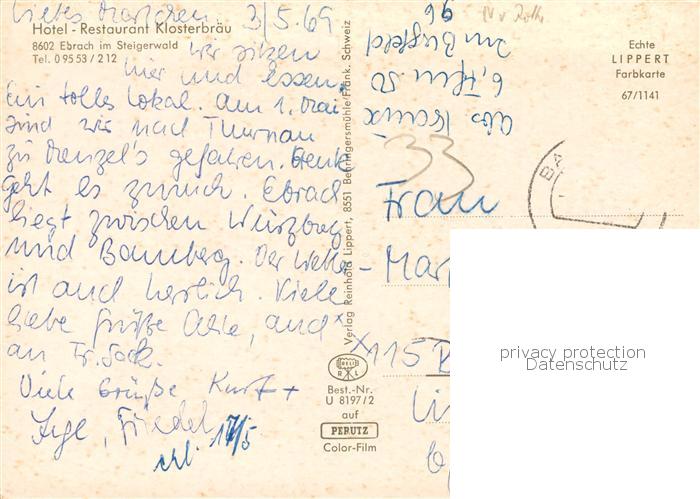 Liebes Martchen 3/5.69
Hotel - Restaurant Klosterbräu
8602 Ebrach im Steigerwald
Tel. 0 95 53 / 212
wir sitzen
hier und essen.
Ein tolles Lokal. Am 1. Mai
sind wir nach Thurnau
zu Menzel's gefahren. Heute
geht es zurück. Ebrach
liegt zwischen Würzburg
und Bamberg. Der Wetter
ist auch herrlich. Viele
liebe Grüße Alle, auch
an Fr.
Viele Grüße Kurt +
Inge, Friedel
17/5
Verlag Reinhold Lippert, 8551 Behringersmühle/Fränk. Schweiz
RELI
R L
Best.-Nr.
U 8197/2
auf
PERUTZ
Color-Film
Echte
LIPPERT
Farbkarte
67/1141
96
6, Ffm. 50
33
BA
Frau
Mar
115
privacy protection
Datenschutz